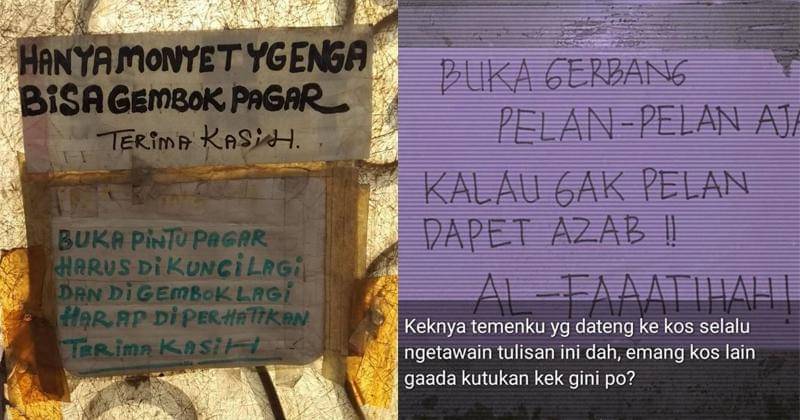 HANYA MONYET YG ENGA
BISA GEMBOK PAGAR
TERIMA KASIH.
BUKA PINTU PAGAR
HARUS DI KUNCI LAGI
DAN DI GEMBOK LAGI
HARAP DI PERHATIKAN
TERIMA KASIH
BUKA GERBANG
PELAN-PELAN AJA
KALAU GAK PELAN
DAPET AZAB !!
AL-FAAATIHAH!
Keknya temenku yg dateng ke kos selalu
ngetawain tulisan ini dah, emang kos lain
gaada kutukan kek gini po?